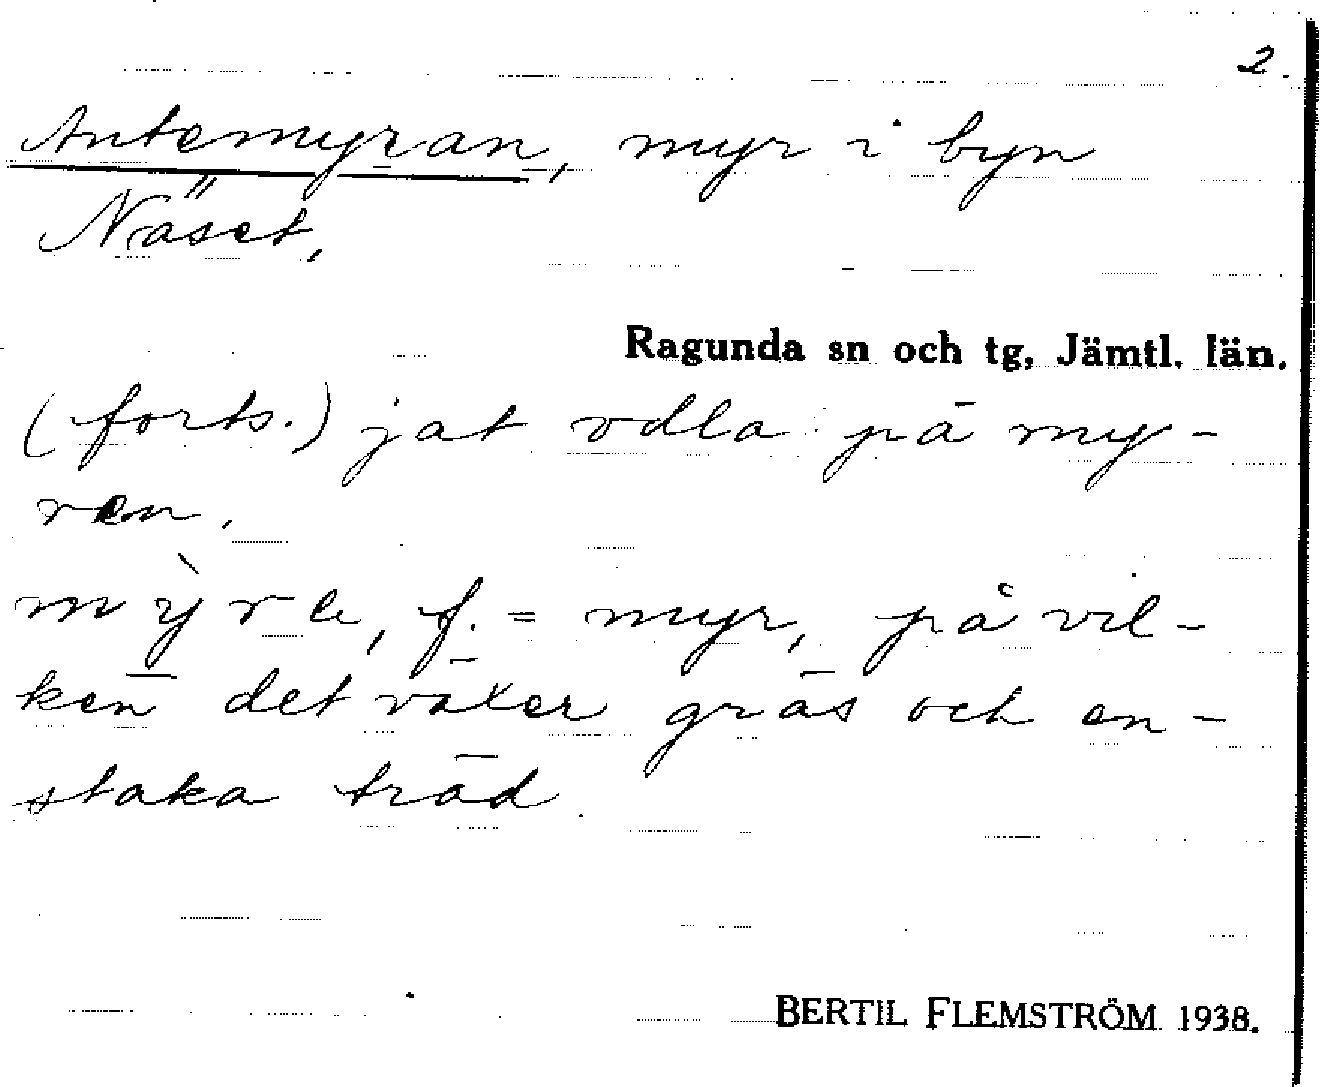 2.
Antemyran, myr i byn
Näset,
Ragunda sn och tg, Jämtl. län.
(forts.) jat odla på my-
ren.
f. = myr, på vil-
ken det växer gräs och en-
staka träd.
BERTIL FLEMSTRÖM 1938.